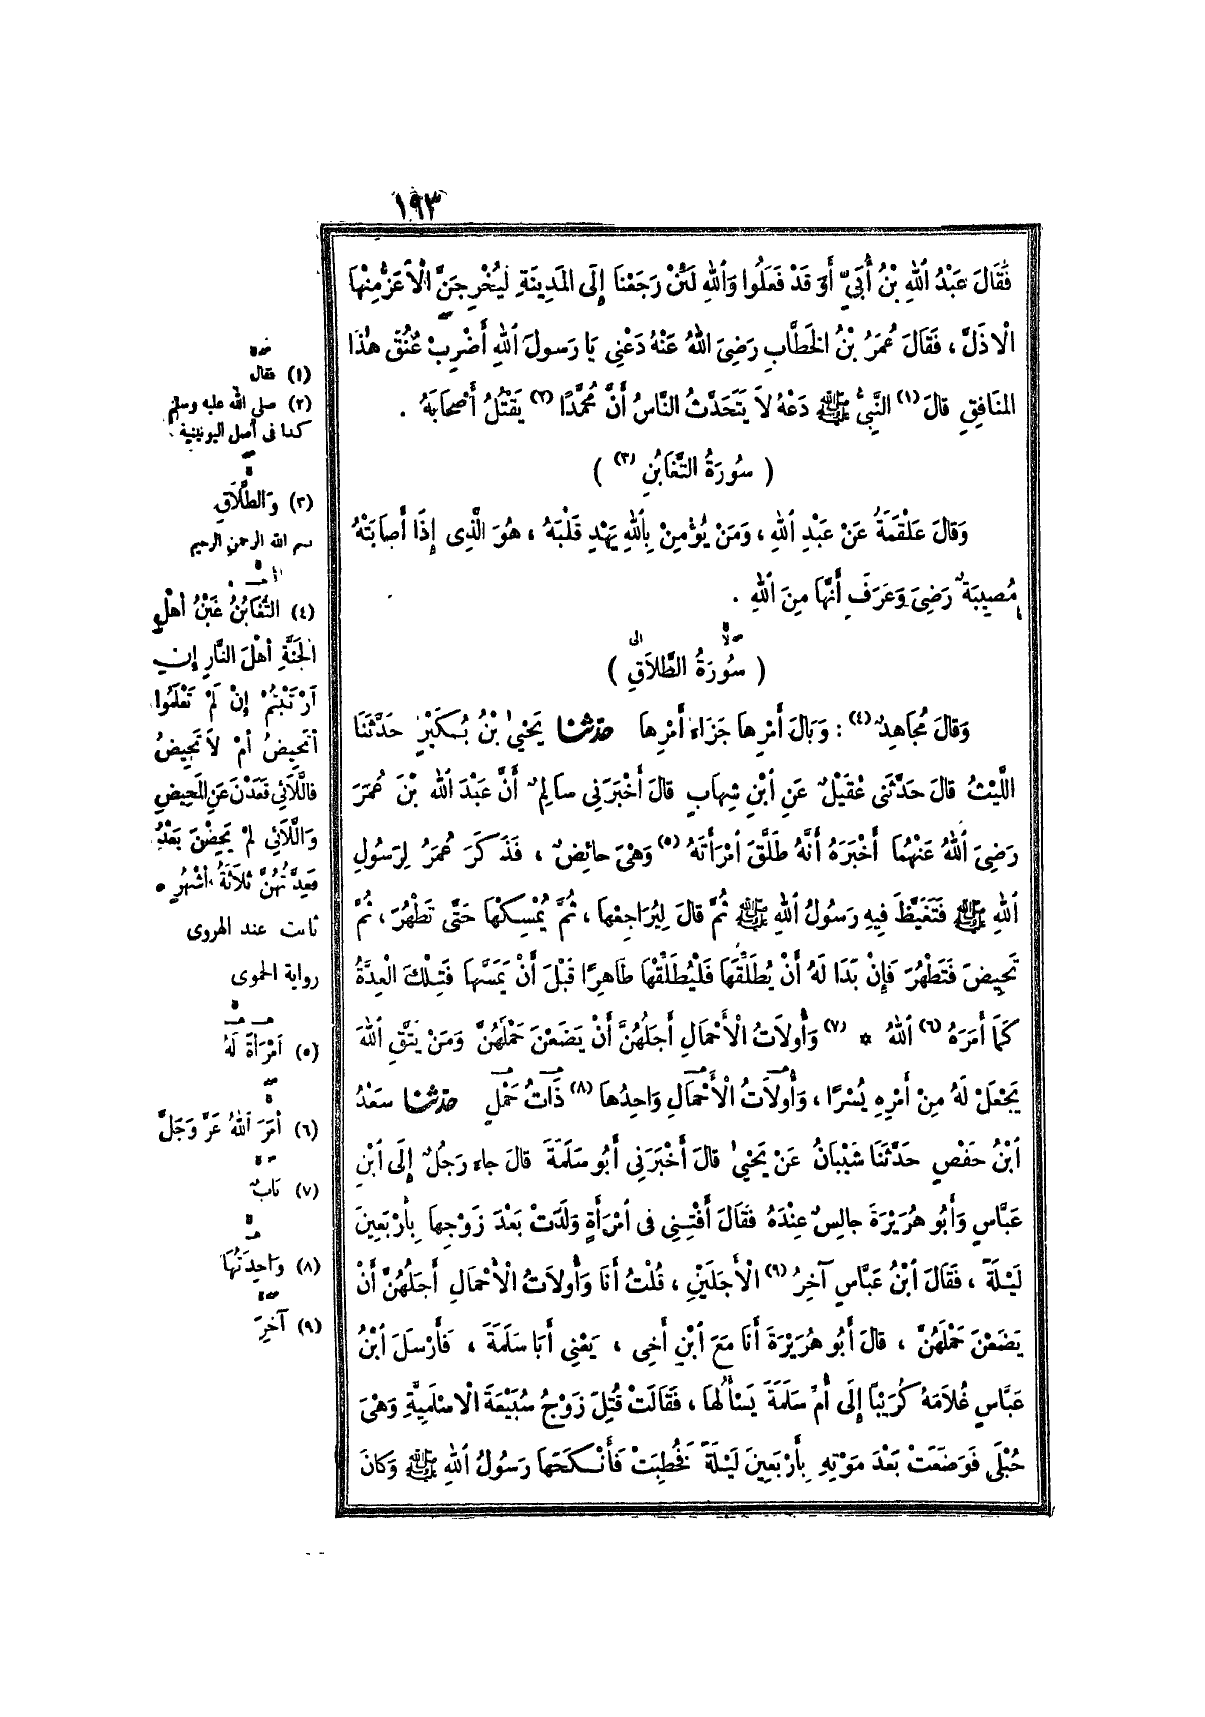 ١٩٣
فَقَالَ عَبْدُ اللهِ بْنُ أُبَيٍّ أَوَ قَدْ فَعَلُوا وَاللهِ لَئِنْ رَجَعْنَا إِلَى المَدِينَةِ لَيُخْرِجَنَّ الْأَعَزُّ مِنْهَا
الْأَذَلَّ ، فَقَالَ عُمَرُ بْنُ الخَطَّابِ رَضِيَ اللهُ عَنْهُ دَعْنِي يَا رَسُولَ اللهِ أَضْرِبْ عُنُقَ هٰذَا
المُنَافِقِ قالَ (١) النَّبِيُّ ﷺ دَعْهُ لاَ يَتَحَدَّثُ النَّاسُ أَنَّ مُحَمَّدًا (٢) يَقْتُلُ أَصْحَابَهُ .
( سُورَةُ التَّغَابُنِ (٣) )
وَقالَ عَلْقَمَةُ عَنْ عَبْدِ اللهِ ، وَمَنْ يُؤْمِنْ بِاللهِ يَهْدِ قَلْبَهُ ، هُوَ الَّذِى إِذَا أَصَابَتْهُ
مُصِيبَةٌ رَضِيَ وَعَرَفَ أَنَّهَا مِنَ اللهِ .
لا الى
( سُورَةُ الطَّلاَقِ )
وَقالَ مُجَاهِدٌ (٤) : وَبَالَ أَمْرِهَا جَزَاءَ أَمْرِهَا حدثنا يَحْيىٰ بْنُ بُكَيْرٍ حَدَّثَنَا
اللَّيْثُ قالَ حَدَّثَنِى عُقَيْلٌ عَنِ ابْنِ شِهَابٍ قالَ أَخْبَرَنِى سالِمٌ أَنَّ عَبْدَ اللهِ بْنَ عُمَرَ
رَضِيَ اللهُ عَنْهُمَا أَخْبَرَهُ أَنَّهُ طَلَّقَ امْرَأَتَهُ (٥) وَهْىَ حائِضٌ ، فَذَكَرَ عُمَرُ لِرَسُولِ
اللهِ ﷺ فَتَغَيَّظَ فِيهِ رَسُولُ اللهِ ﷺ ثُمَّ قالَ لِيُرَاجِعْهَا ، ثُمَّ يُمْسِكْهَا حَتَّى تَطْهُرَ ، ثُمَّ
تَحِيضَ فَتَطْهُرَ فَإِنْ بَدَا لَهُ أَنْ يُطَلِّقَهَا فَلْيُطَلِّقْهَا طَاهِرًا قَبْلَ أَنْ يَمَسَّهَا فَتِلْكَ الْعِدَّةُ
كَمَا أَمَرَهُ (٦) اللهُ * (٧) وَأُولَاتُ الْأَحْمَالِ أَجَلُهُنَّ أَنْ يَضَعْنَ حَمْلَهُنَّ وَمَنْ يَتَّقِ اللهَ
يَجْعَلْ لَهُ مِنْ أَمْرِهِ يُسْرًا ، وَأُولَاتُ الْأَحْمَالِ وَاحِدُهَا (٨) ذَاتُ حَمْلٍ حدثنا سَعْدُ
ابْنُ حَفْصٍ حَدَّثَنَا شَيْبَانُ عَنْ يَحْيىٰ قالَ أَخْبَرَنِى أَبُو سَلَمَةَ قالَ جاءَ رَجُلٌ إِلَى ابْنِ
عَبَّاسٍ وَأَبُو هُرَيْرَةَ جالِسٌ عِنْدَهُ فَقَالَ أَفْتِنِى فِى امْرَأَةٍ وَلَدَتْ بَعْدَ زَوْجِهَا بِأَرْبَعِينَ
لَيْلَةً ، فَقَالَ ابْنُ عَبَّاسٍ آخِرُ (٩) الْأَجَلَيْنِ ، قُلْتُ أَنَا وَأُولَاتُ الْأَحْمَالِ أَجَلُهُنَّ أَنْ
يَضَعْنَ حَمْلَهُنَّ ، قالَ أَبُو هُرَيْرَةَ أَنَا مَعَ ابْنِ أَخِى ، يَعْنِى أَبَا سَلَمَةَ ، فَأَرْسَلَ ابْنُ
عَبَّاسٍ غُلَامَهُ كُرَيْبًا إِلَى أُمِّ سَلَمَةَ يَسْأَلُهَا ، فَقَالَتْ قُتِلَ زَوْجُ سُبَيْعَةَ الْأَسْلَمِيَّةِ وَهْىَ
حُبْلَى فَوَضَعَتْ بَعْدَ مَوْتِهِ بِأَرْبَعِينَ لَيْلَةً نَخُطِبَتْ فَأَنْكَحَهَا رَسُولُ اللهِ ﷺ وَكَانَ
(١) فقال
(٢) صلى الله عليه وسلم
كذا فى أصل اليونينية
(٣) وَالطَّلَاقِ
بسم الله الرحمن الرحيم
(٤) التَّغَابُنُ غَبْنُ أَهْلِ
الجَنَّةِ أَهْلَ النَّارِ إِنِ
ارْتَبْتُمْ إِنْ لَمْ تَعْلَمُوا
أَتَحِيضُ أَمْ لاَ تَحِيضُ
فَاللَّائِى قَعَدْنَ عَنِ المَحِيضِ
وَاللَّائِى لَمْ يَحِضْنَ بَعْدُ
فَعِدَّتُهُنَّ ثَلَاثَةُ أَشْهُرٍ .
ثابت عند الهروى
رواية الحموى
(٥) امْرَأَةً لَهُ
(٦) أَمَرَ اللهُ عَزَّ وَجَلَّ
(٧) بَابٌ
(٨) وَاحِدَتُهَا
(٩) آخِرَ